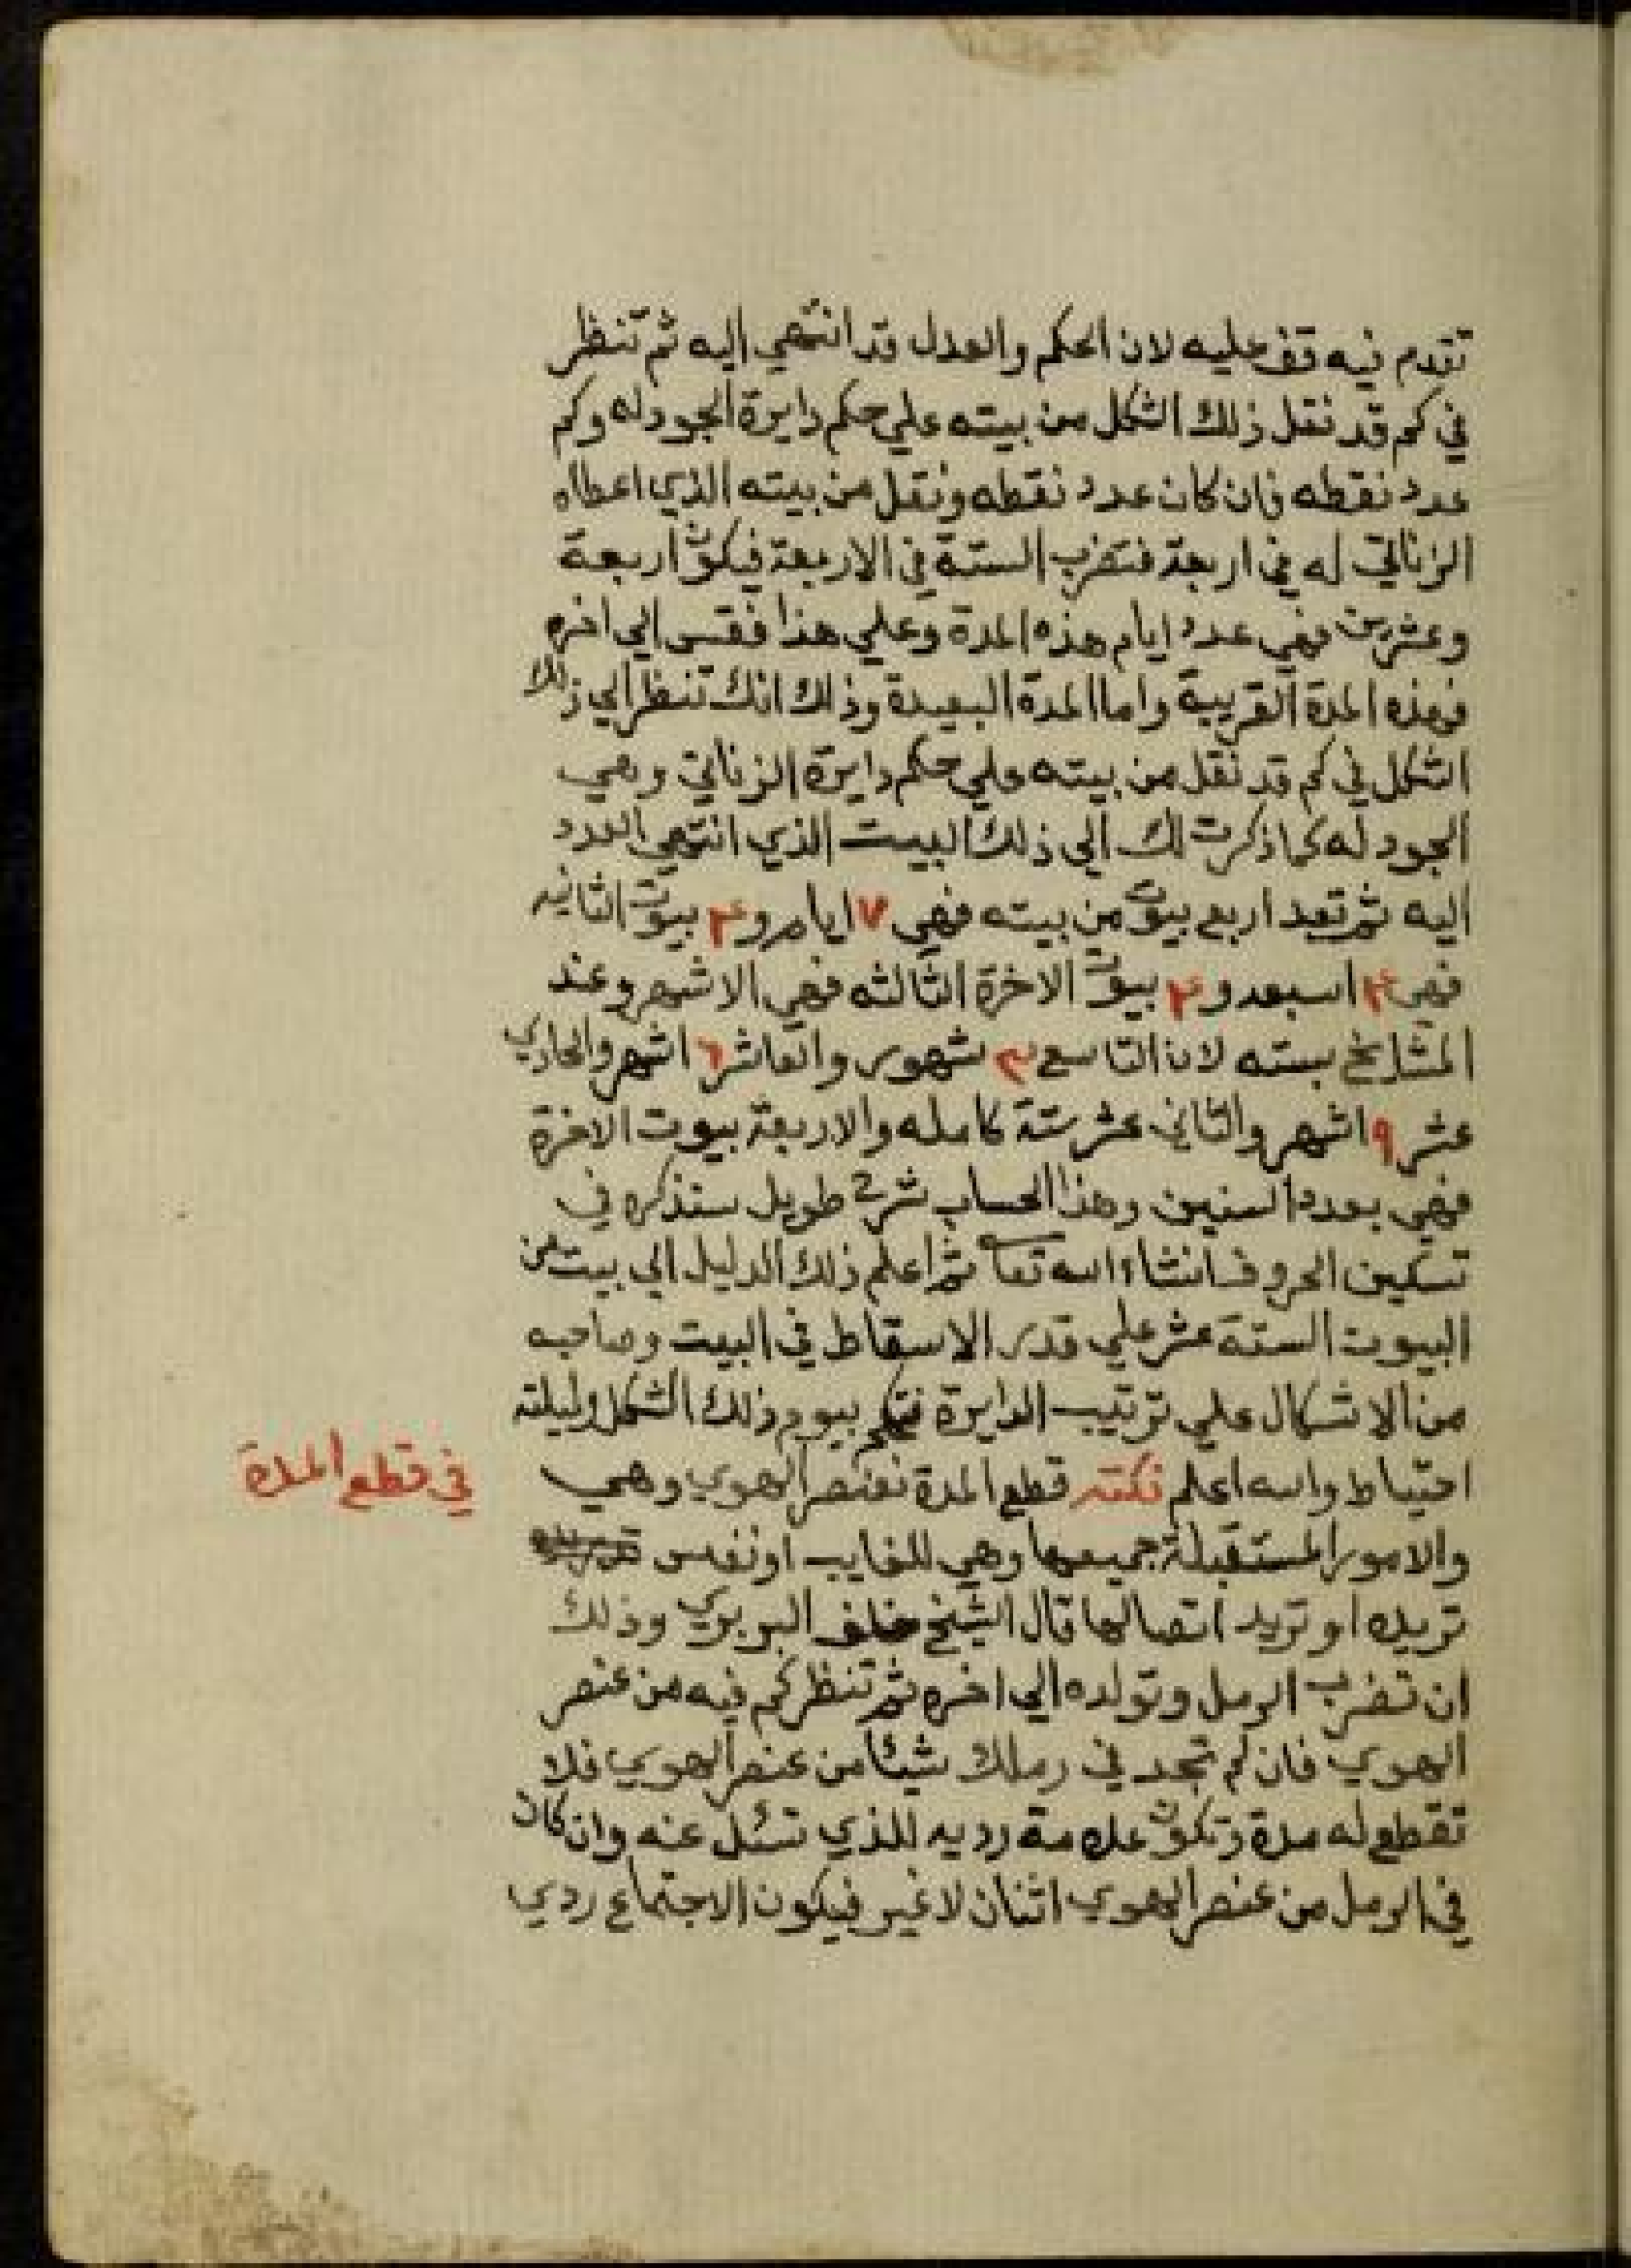 تقدم فيه قف عليه لان الحكم والعدل قد انتهي اليه ثم تنظر
في كم قد نقل ذلك الشكل من بيته علي حكم دايرة الجودله وكم
عدد نقطه فان كان عدد نقطه ونقل من بيته الذي اعطاه
الزناتي له في اربعة فتضرب الستة في الاربعة فيكون اربعة
وعشرين فهي عدد ايام هذه المدة وعلي هذا فقس الي اخره
فهذه المدة القريبة واما المدة البعيدة وذلك انك تنظر الي ذلك
الشكل في كم قد نقل من بيته علي حكم دايرة الزناتي وهي
الجودله كما ذكرت لك الي ذلك البيت الذي انتهي العدد
اليه ثم تعد اربع بيوت من بيته فهي ٧ ايام و٤ بيوت الثانيه
فهي ٤ اسبعه و٤ بيوت الاخرة الثالثه فهي الاشهر وعند
المشايخ بسته لان التاسع ٣ شهور والعاشر ٦ اشهر والحادي
عشر ٩ اشهر والثاني عشر ستة كامله والاربعة بيوت الاخرة
فهي بعدد السنين وهذا الحساب شرح طويل سنذكره في
تسكين الحروف انشاء الله تعا ثم اعلم ذلك الدليل الي بيت من
البيوت الستة عشر علي قدر الاسقاط في البيت وصاحبه
من الاشكال علي ترتيب الدايرة فتحكم بيوم ذلك الشكل وليلته
احتياط والله اعلم نكته قطع المدة نعنصر الهوي وهي
في قطع المدة
والامور المستقبلة جميعها وهي للغايب او نفس
تريده او تريد اتصالها قال الشيخ خلف البربري وذلك
ان تضرب الرمل وتولده الي اخره ثم تنظر كم فيه من عنصر
الهوي فان لم تجد في رملك شيئا من عنصر الهوي فلا
تقطع له مدة وتكون علامة رديه للذي تسئل عنه وان كان
في الرمل من عنصر الهوي اثنان لا غير فيكون الاجتماع ردي